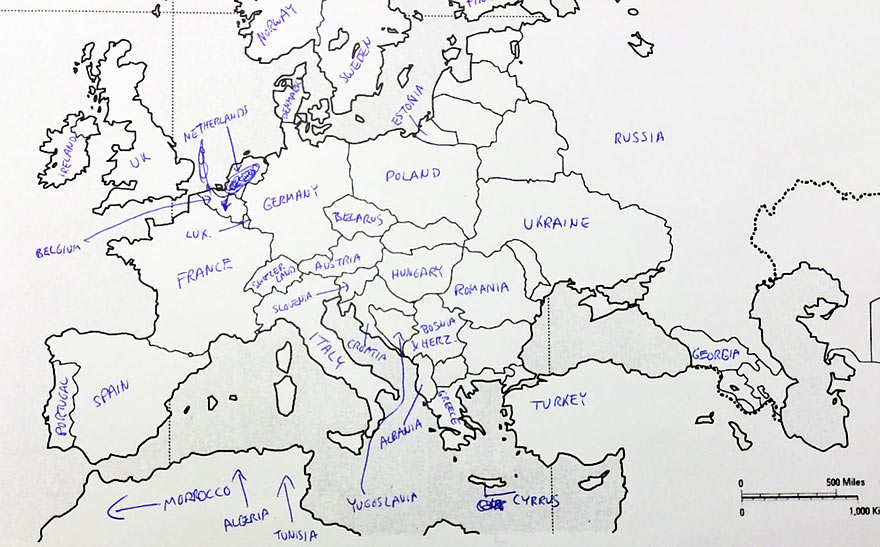 NORWAY
SWEDEN
DENMARK
ESTONIA
RUSSIA
NETHERLANDS
IRELAND
UK
POLAND
GERMANY
BELGIUM
LUX.
BELARUS
UKRAINE
FRANCE
SWITZER
LAND
AUSTRIA
HUNGARY
ROMANIA
SLOVENIA
ITALY
CROATIA
BOSNIA
& HERZ.
GEORGIA
PORTUGAL
SPAIN
ALBANIA
GREECE
TURKEY
MORROCCO
ALGERIA
TUNISIA
YUGOSLAVIA
CYRRUS
0 500 Miles
0 1,000 Ki